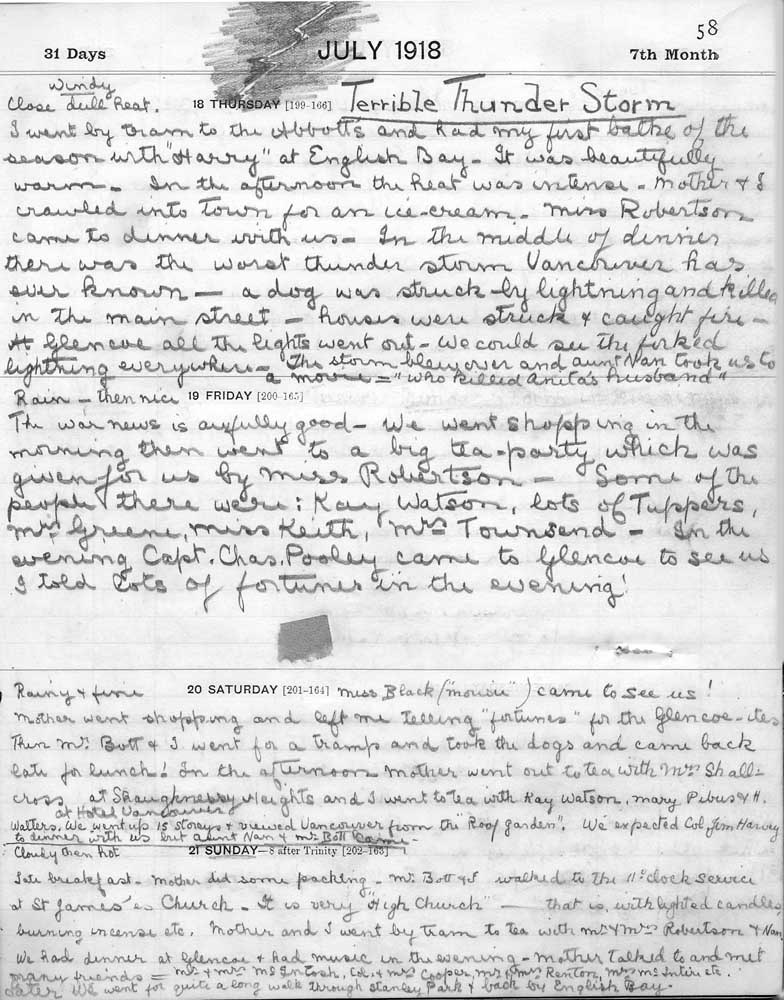 58
31 Days JULY 1918 7th Month
Windy
Close dull heat. 18 THURSDAY [199-166] Terrible Thunder Storm
I went by tram to the Abbott's and had my first bathe of the
season with "Harry" at English Bay - It was beautifully
warm - In the afternoon the heat was intense - Mother & I
crawled into town for an ice-cream - Miss Robertson
came to dinner with us - In the middle of dinner
there was the worst thunder storm Vancouver has
ever known - a dog was struck by lightning and killed
in the main street - houses were struck & caught fire -
At Glencoe all the lights went out - We could see the forked
lightning everywhere - The storm blew over and aunt Nan took us to
a movie = "Who killed Anita's husband"
Rain - then nice 19 FRIDAY [200-165]
The war news is awfully good - We went shopping in the
morning then went to a big tea-party which was
given for us by Miss Robertson - Some of the
people there were: Kay Watson, lots of Tuppers,
Mrs Greene, Miss Keith, Mrs Townsend - In the
evening Capt. Chas. Pooley came to Glencoe to see us
I told lots of fortunes in the evening!
Rainy & fine 20 SATURDAY [201-164] Miss Black ( ) came to see us!
Mother went shopping and left me telling "fortunes" for the Glencoe-ites
Then Mr. Bott & I went for a tramp and took the dogs and came back
late for lunch! In the afternoon Mother went out to tea with Mrs Shall-
cross at Shaughnessy Heights and I went to tea with Kay Watson, Mary Pibus & H.
at Hotel Vancouver
Walters. We went up 15 storeys & viewed Vancouver from the "Roof garden". We expected Col Jim Harvey
to dinner with us but aunt Nan & Mr. Bott came -
Cloudy then hot 21 SUNDAY—8 after Trinity [202-163]
Late breakfast - Mother did some packing - Mr. Bott & I walked to the 11 o'clock service
at St James'es Church - It is very "High Church" - that is, with lighted candles,
burning incense etc. Mother and I went by tram to tea with Mr & Mrs Robertson & Nan
We had dinner at Glencoe & had music in the evening - Mother talked to and met
many friends = Mr & Mrs McIntosh, Col. & Mrs Cooper, Mr & Mrs Renton, Mrs etc.
Later We went for quite a long walk through Stanley Park & back by English Bay.